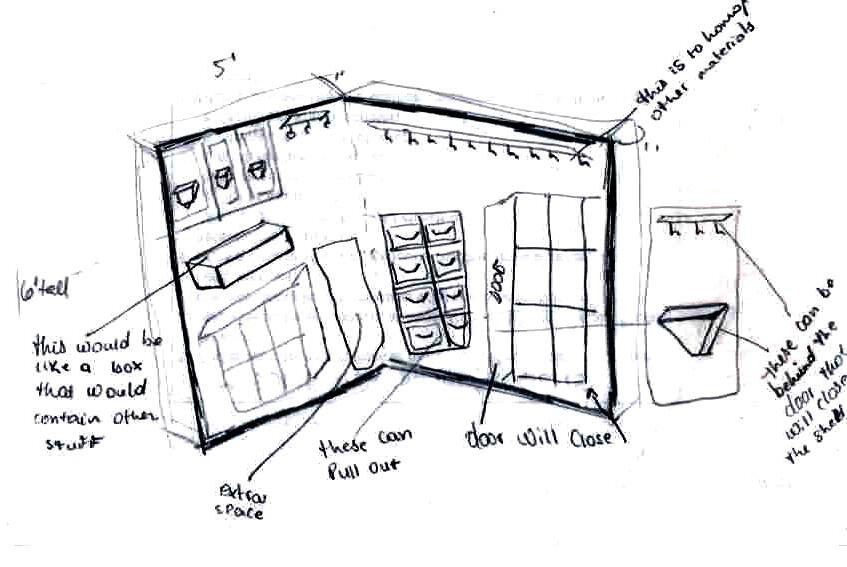 5'
"
this is to hang
other materials
"
6' tall
this would be
like a box
that would
contain other
stuff
Extra
space
these can
Pull out
door
door will close
these can be
behind the
door that
will close
the shelf